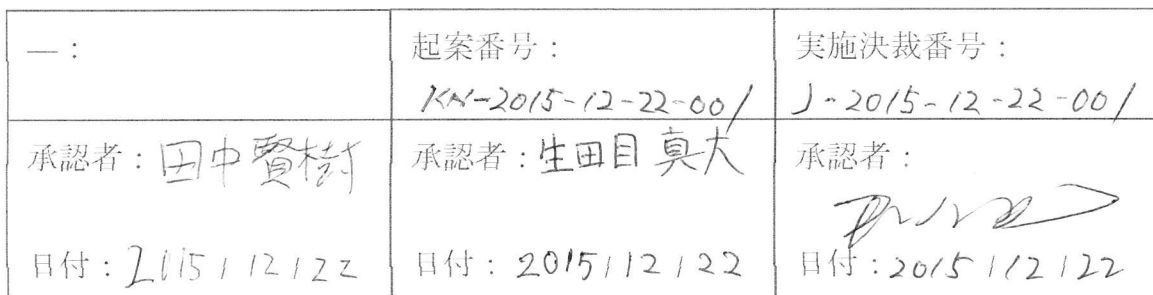 ―：
起案番号：
KN-2015-12-22-001
実施決裁番号：
J-2015-12-22-001
承認者：田中賢樹
日付：2015/12/22
承認者：生田目真大
日付：2015/12/22
承認者：
日付：2015/12/22